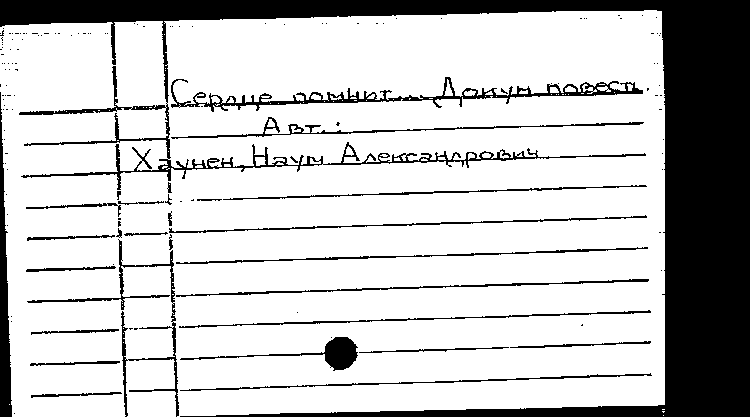 Сердце помнит... Докум повесть.
Авт.:
Хаунен, Наум Александрович